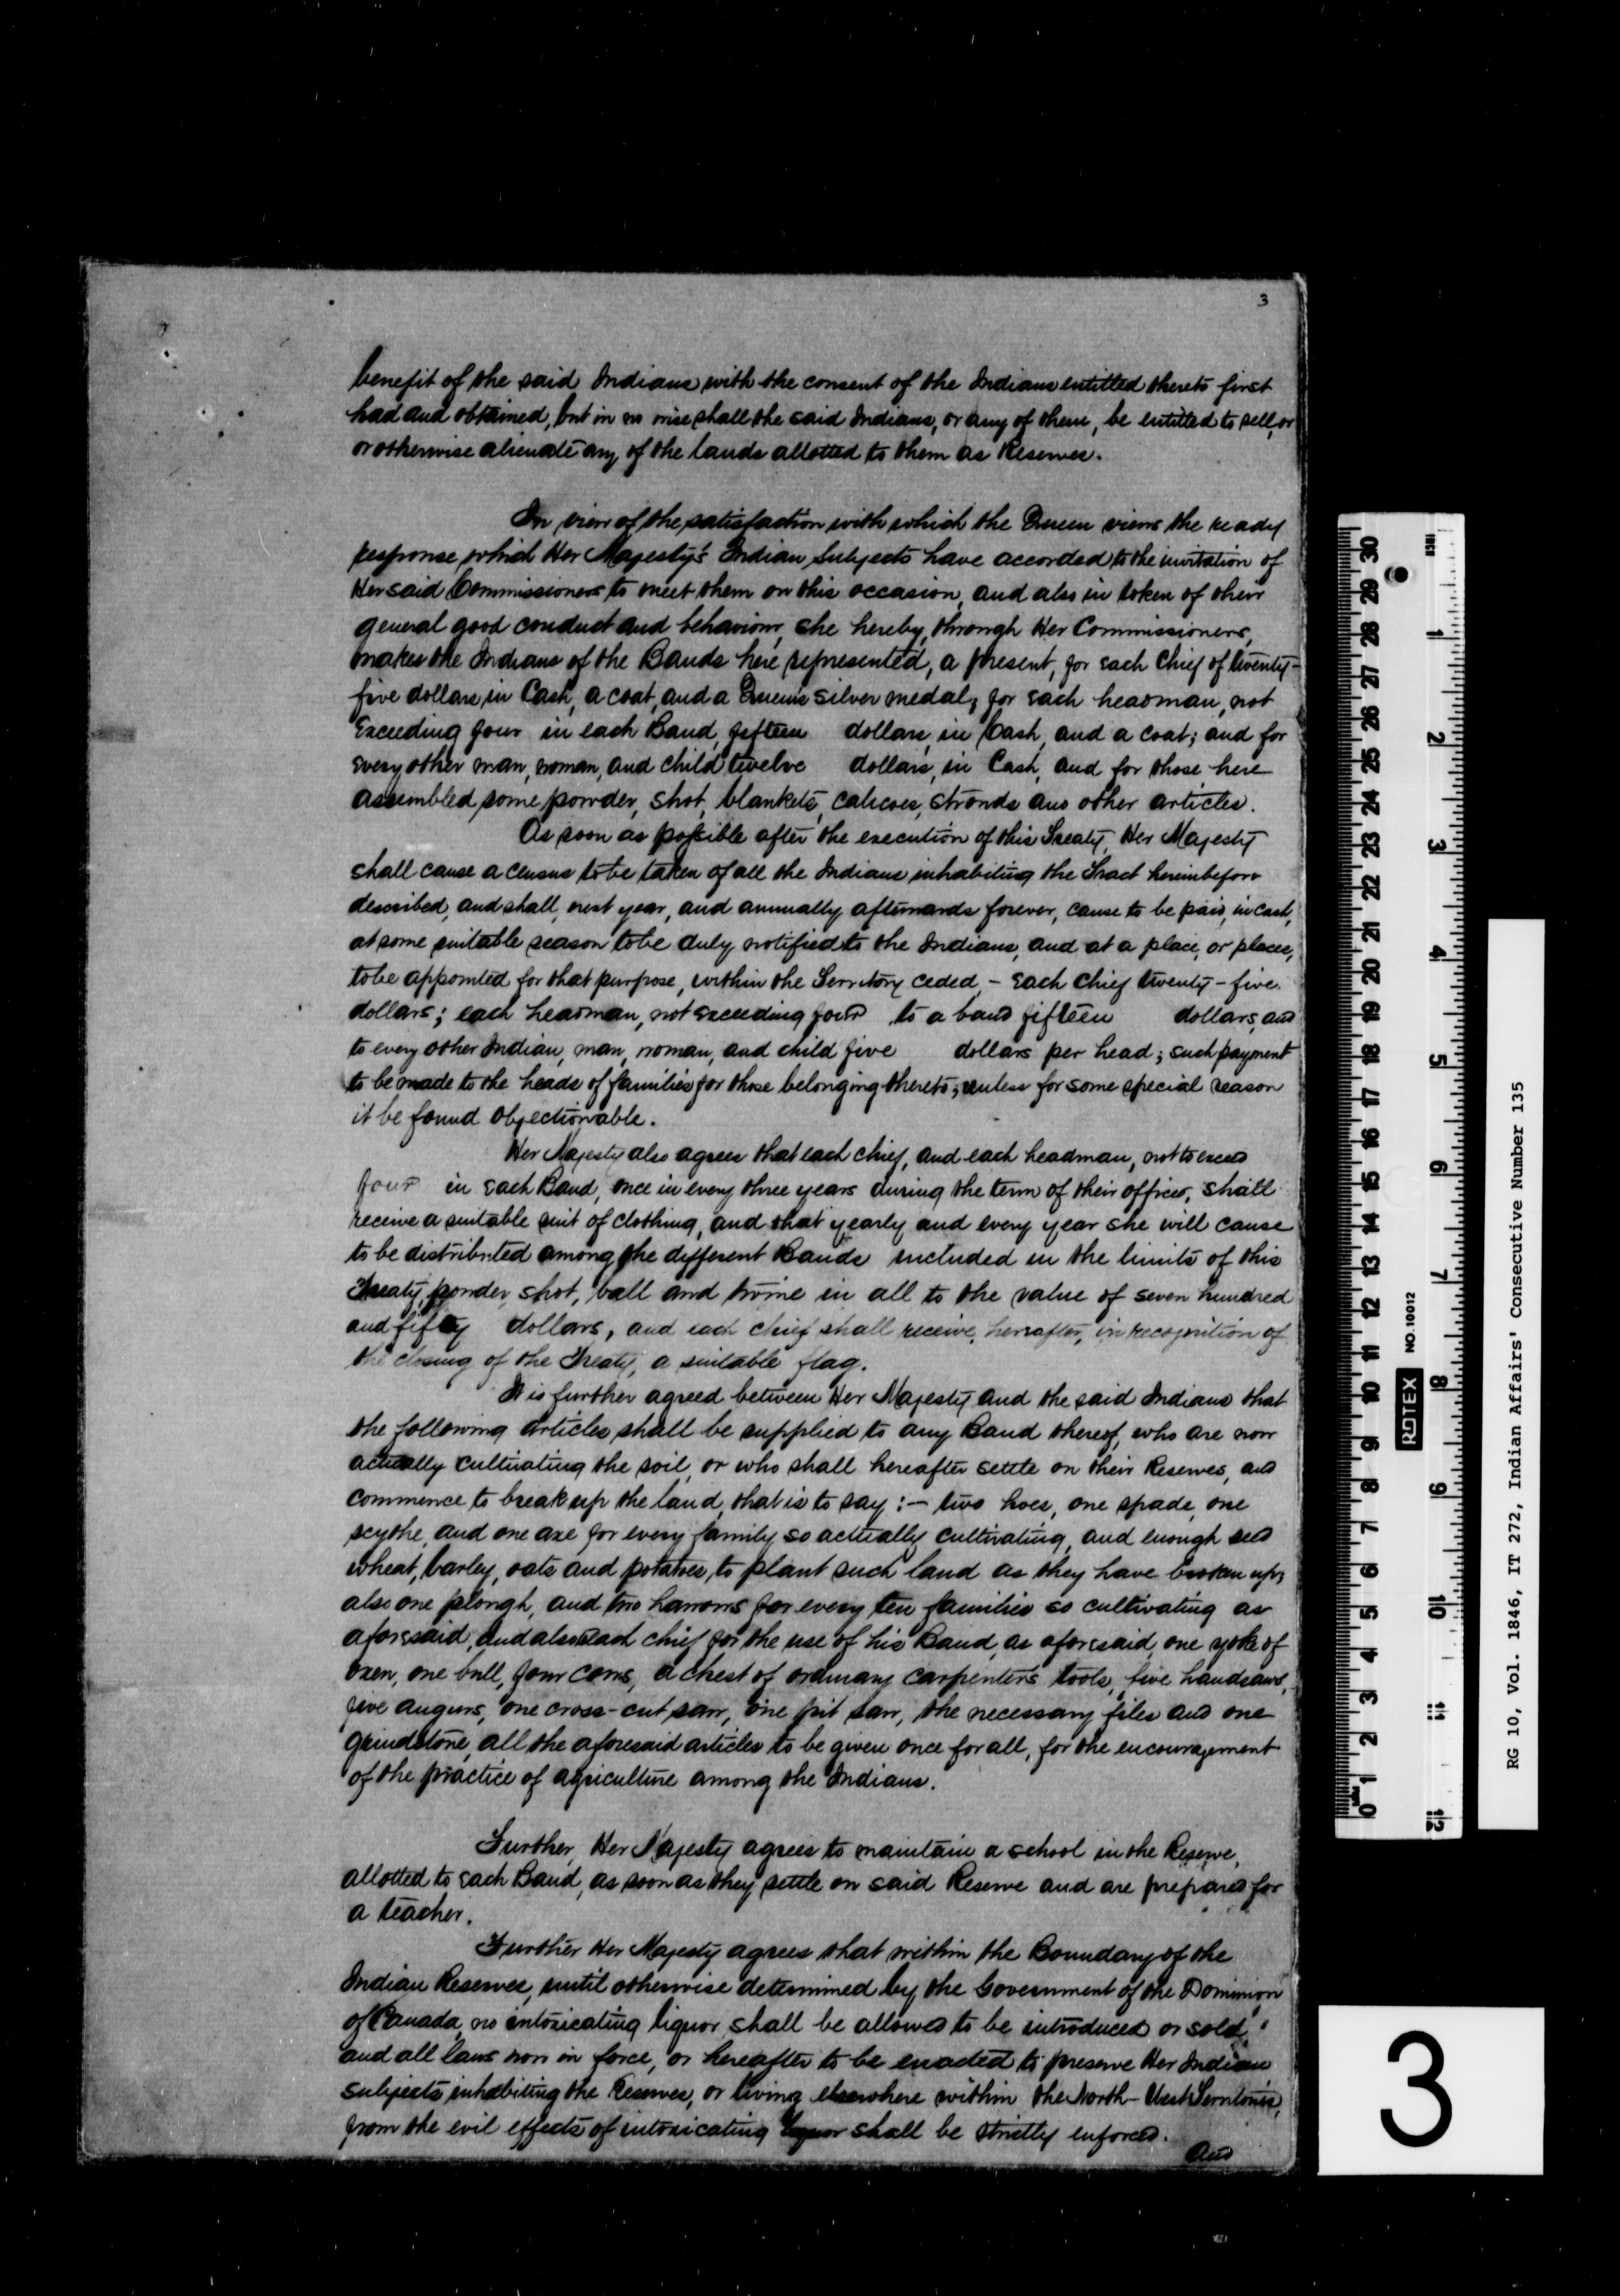 3
benefit of the said Indians with the consent of the Indians entitled thereto first
had and obtained, but in no wise shall the said Indians, or any of them, be entitled to sell, or
or otherwise alienate any of the lands allotted to them as Reserves.
In view of the satisfaction with which the Queen views the ready
response which Her Majesty's Indian Subjects have accorded to the invitation of
Her said Commissioners to meet them on this occasion, and also in token of their
general good conduct and behaviour, she hereby, through Her Commissioners,
makes the Indians of the Bands here represented, a present, for each Chief of twenty-
five dollars in Cash, a coat, and a Queen's silver medal, for each headman, not
exceeding four in each Band, fifteen dollars, in Cash, and a coat; and for
every other man, woman, and child twelve dollars, in Cash, and for those here
assembled, some powder, shot, blankets, calicoes, strouds and other articles.
As soon as possible after the execution of this Treaty, Her Majesty
shall cause a census to be taken of all the Indians inhabiting the Tract hereinbefore
described, and shall, next year, and annually afterwards forever, cause to be paid, in cash,
at some suitable season to be duly notified to the Indians, and at a place, or places,
to be appointed for that purpose, within the Territory ceded, - each Chief twenty-five
dollars; each headman, not exceeding four to a band fifteen dollars, and
to every other Indian, man, woman, and child five dollars per head; such payment
to be made to the heads of families for those belonging thereto, unless for some special reason
it be found objectionable.
Her Majesty also agrees that each chief, and each headman, not to exceed
four in each Band, once in every three years during the term of their offices, shall
receive a suitable suit of clothing, and that yearly and every year she will cause
to be distributed among the different Bands included in the limits of this
Treaty, powder, shot, ball and twine in all to the value of seven hundred
and fifty dollars, and each chief shall receive, hereafter, in recognition of
the closing of the Treaty, a suitable flag.
It is further agreed between Her Majesty and the said Indians that
the following articles shall be supplied to any Band thereof, who are now
actually cultivating the soil, or who shall hereafter settle on their Reserves, and
commence to break up the land, that is to say :- two hoes, one spade, one
scythe, and one axe for every family so actually cultivating, and enough seed
wheat, barley, oats and potatoes, to plant such land as they have broken up,
also one plough, and two harrows for every ten families so cultivating as
aforesaid, and also each chief for the use of his Band, as aforesaid, one yoke of
oxen, one bull, four cows, a chest of ordinary carpenter's tools, five handsaws,
five augurs, one cross-cut saw, one pit saw, the necessary files and one
grindstone, all the aforesaid articles to be given once for all, for the encouragement
of the practice of agriculture among the Indians.
Further, Her Majesty agrees to maintain a school in the Reserve,
allotted to each Band, as soon as they settle on said Reserve and are prepared for
a teacher.
Further Her Majesty agrees that within the Boundary of the
Indian Reserves, until otherwise determined by the Government of the Dominion
of Canada, no intoxicating liquor shall be allowed to be introduced or sold,
and all laws now in force, or hereafter to be enacted to preserve Her Indian
subjects, inhabiting the Reserves, or living elsewhere within the North-West Territories,
from the evil effects of intoxicating liquor shall be strictly enforced.
And
RG 10, Vol. 1846, IT 272, Indian Affairs' Consecutive Number 135
30 29 28 27 26 25 24 23 22 21 20 19 18 17 16 15 14 13 12 11 10 9 8 7 6 5 4 3 2 1 0
INCH 1 2 3 4 5 6 7 8 9 10 11 12
ROTEX NO. 10012
3